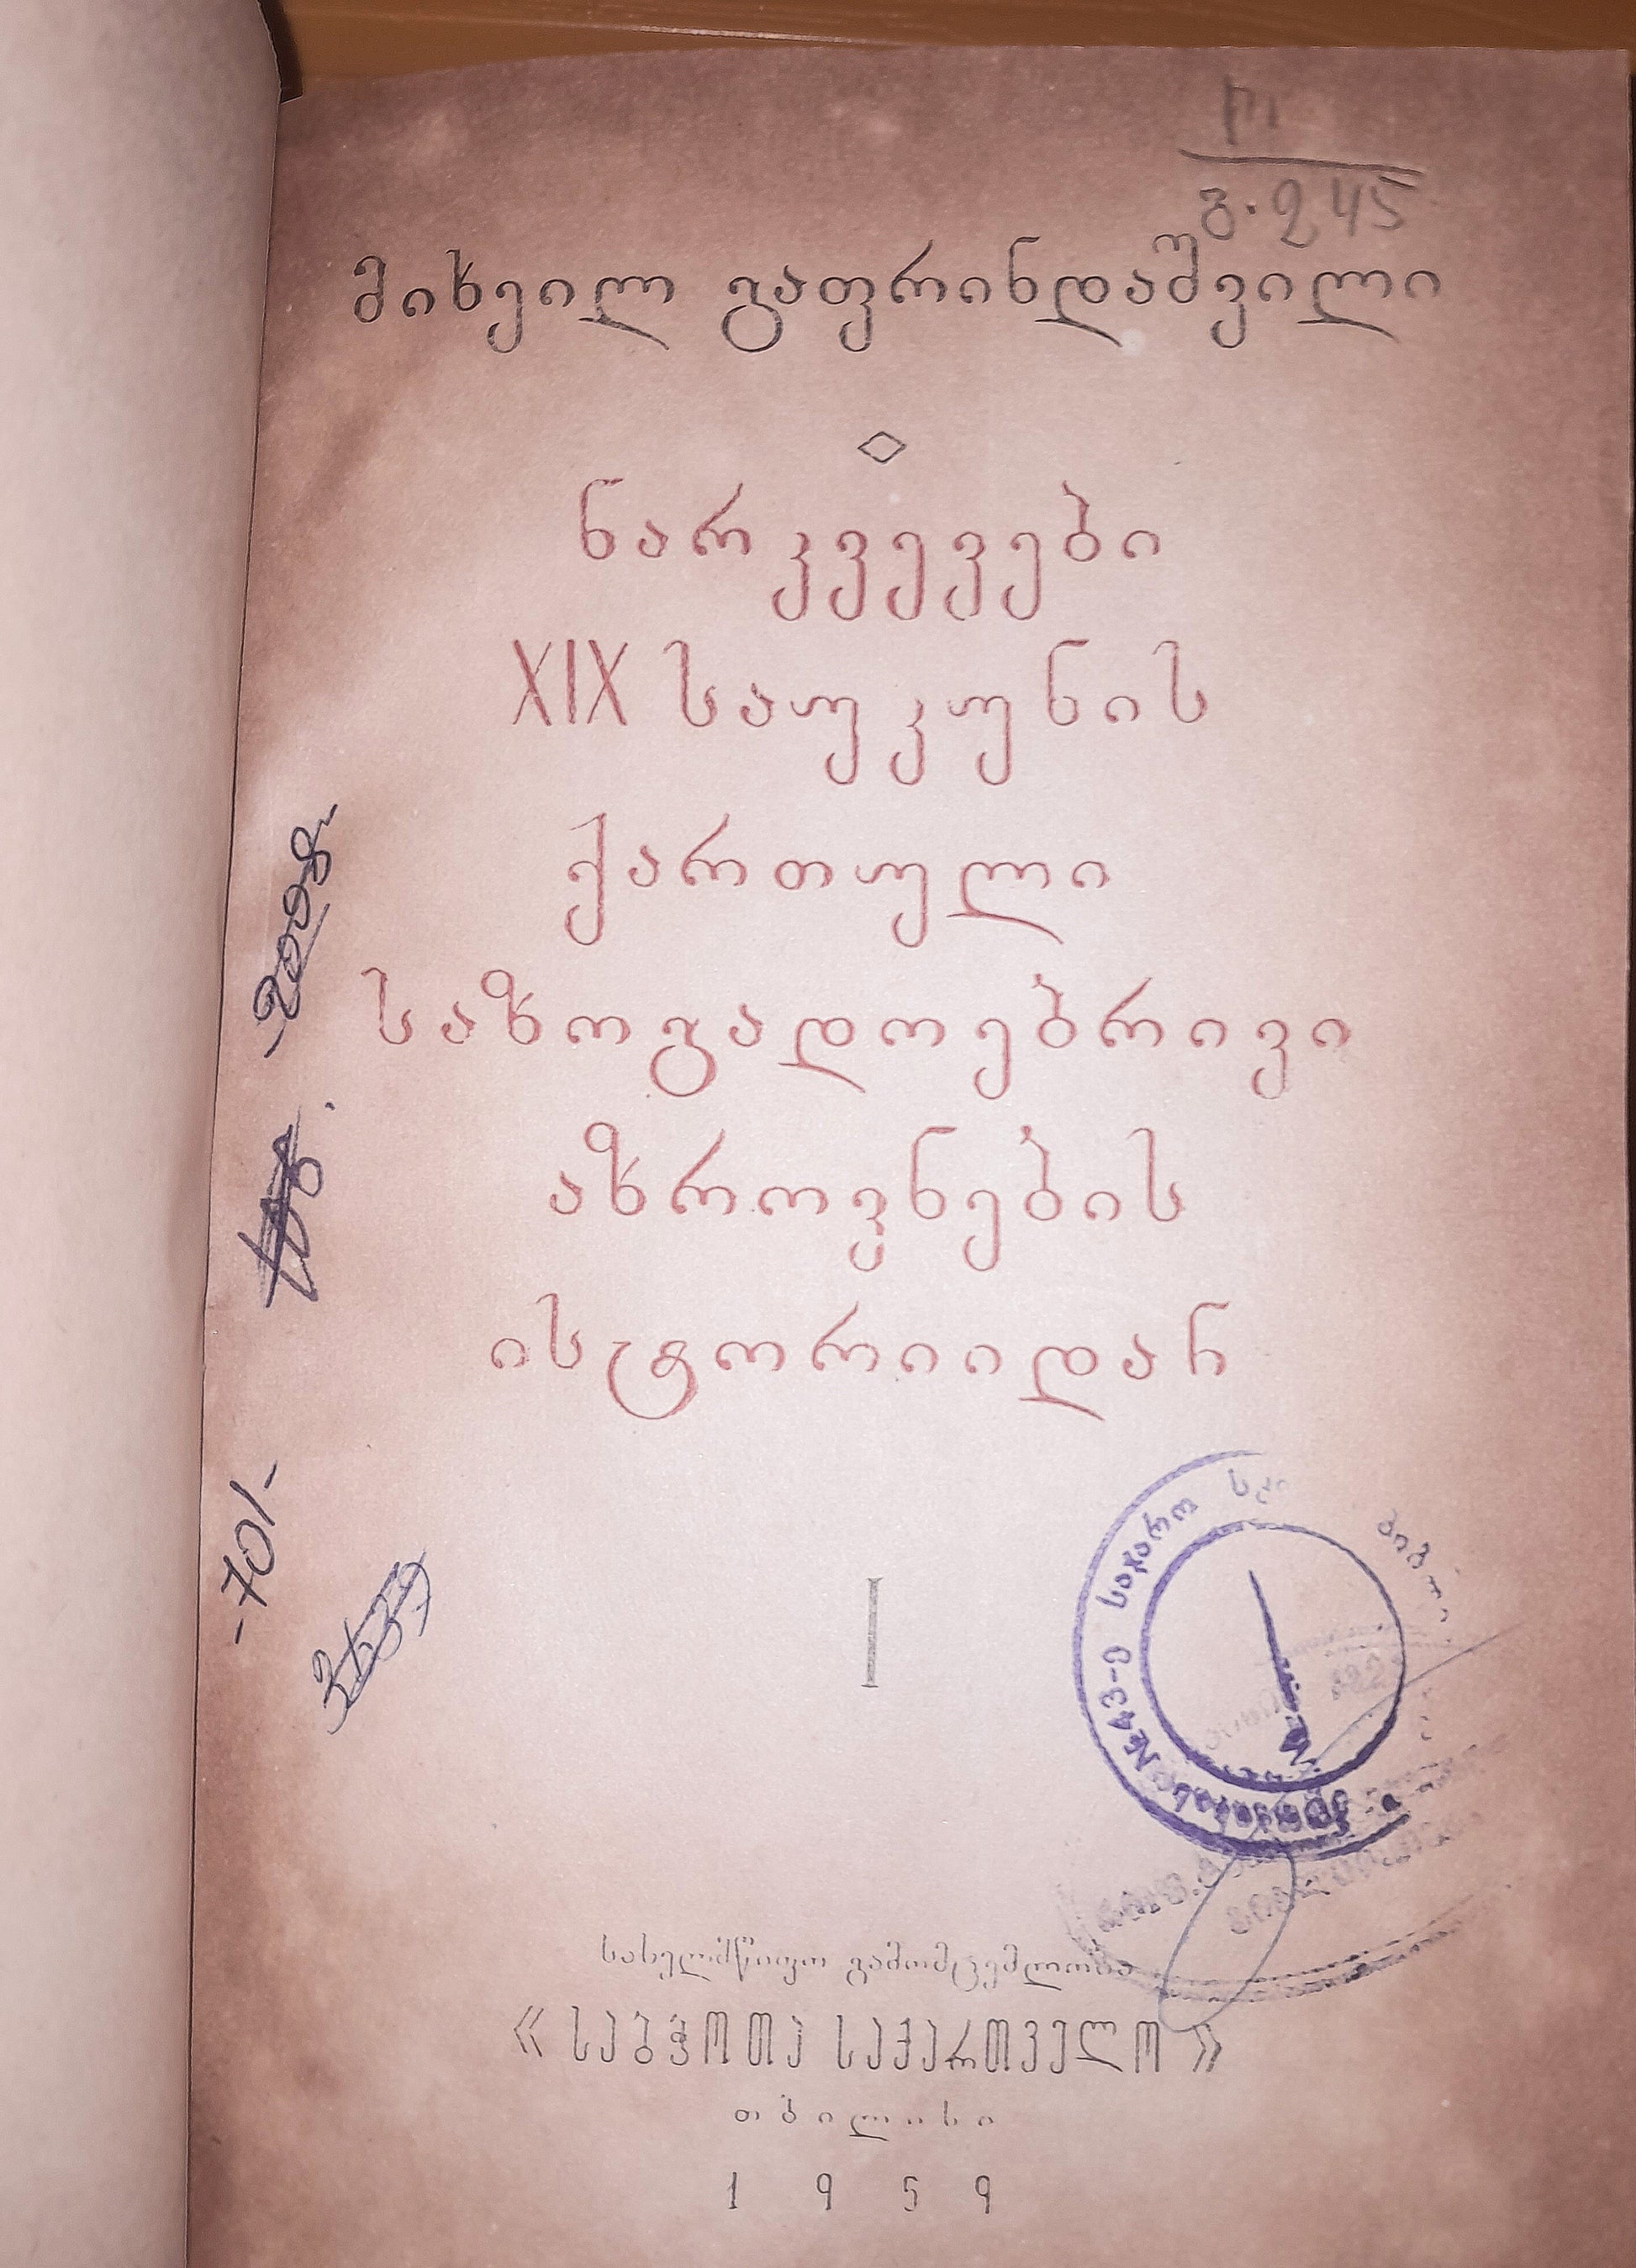 გ. 245
მიხეილ გაფრინდაშვილი
ნარკვევები
XIX საუკუნის
ქართული
საზოგადოებრივი
აზროვნების
ისტორიიდან
-2008-
-701-
I
№43-ე საჯარო
სახელმწიფო გამომცემლობა
« საბჭოთა საქართველო »
თბილისი
1959